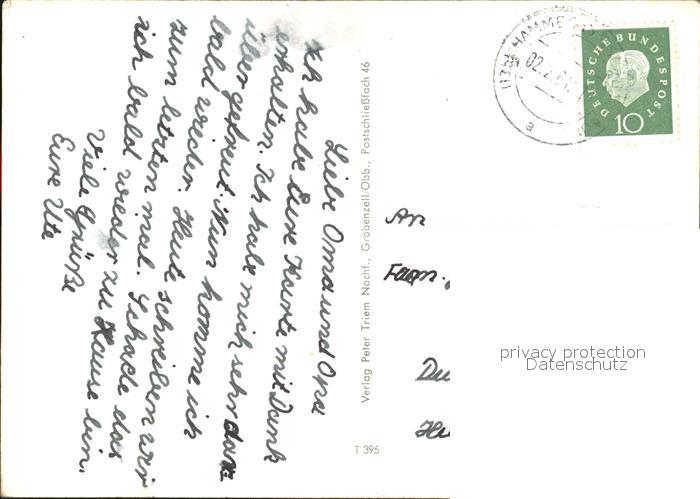 Liebe Oma und Opa
Ich habe Eure Karte mit Dank
erhalten. Ich habe mich sehr darü
über gefreut. Nun komme ich
bald wieder. Heute schreiben wir
zum letzten mal. Schade das
ich bald wieder zu Hause bin.
Viele Grüße
Eure Ute
Verlag Peter Triem Nachf., Gröbenzell/Obb., Postschließfach 46
T 395
HAMME
02.
a
DEUTSCHE BUNDESPOST
10
An
Fam.
privacy protection
Datenschutz